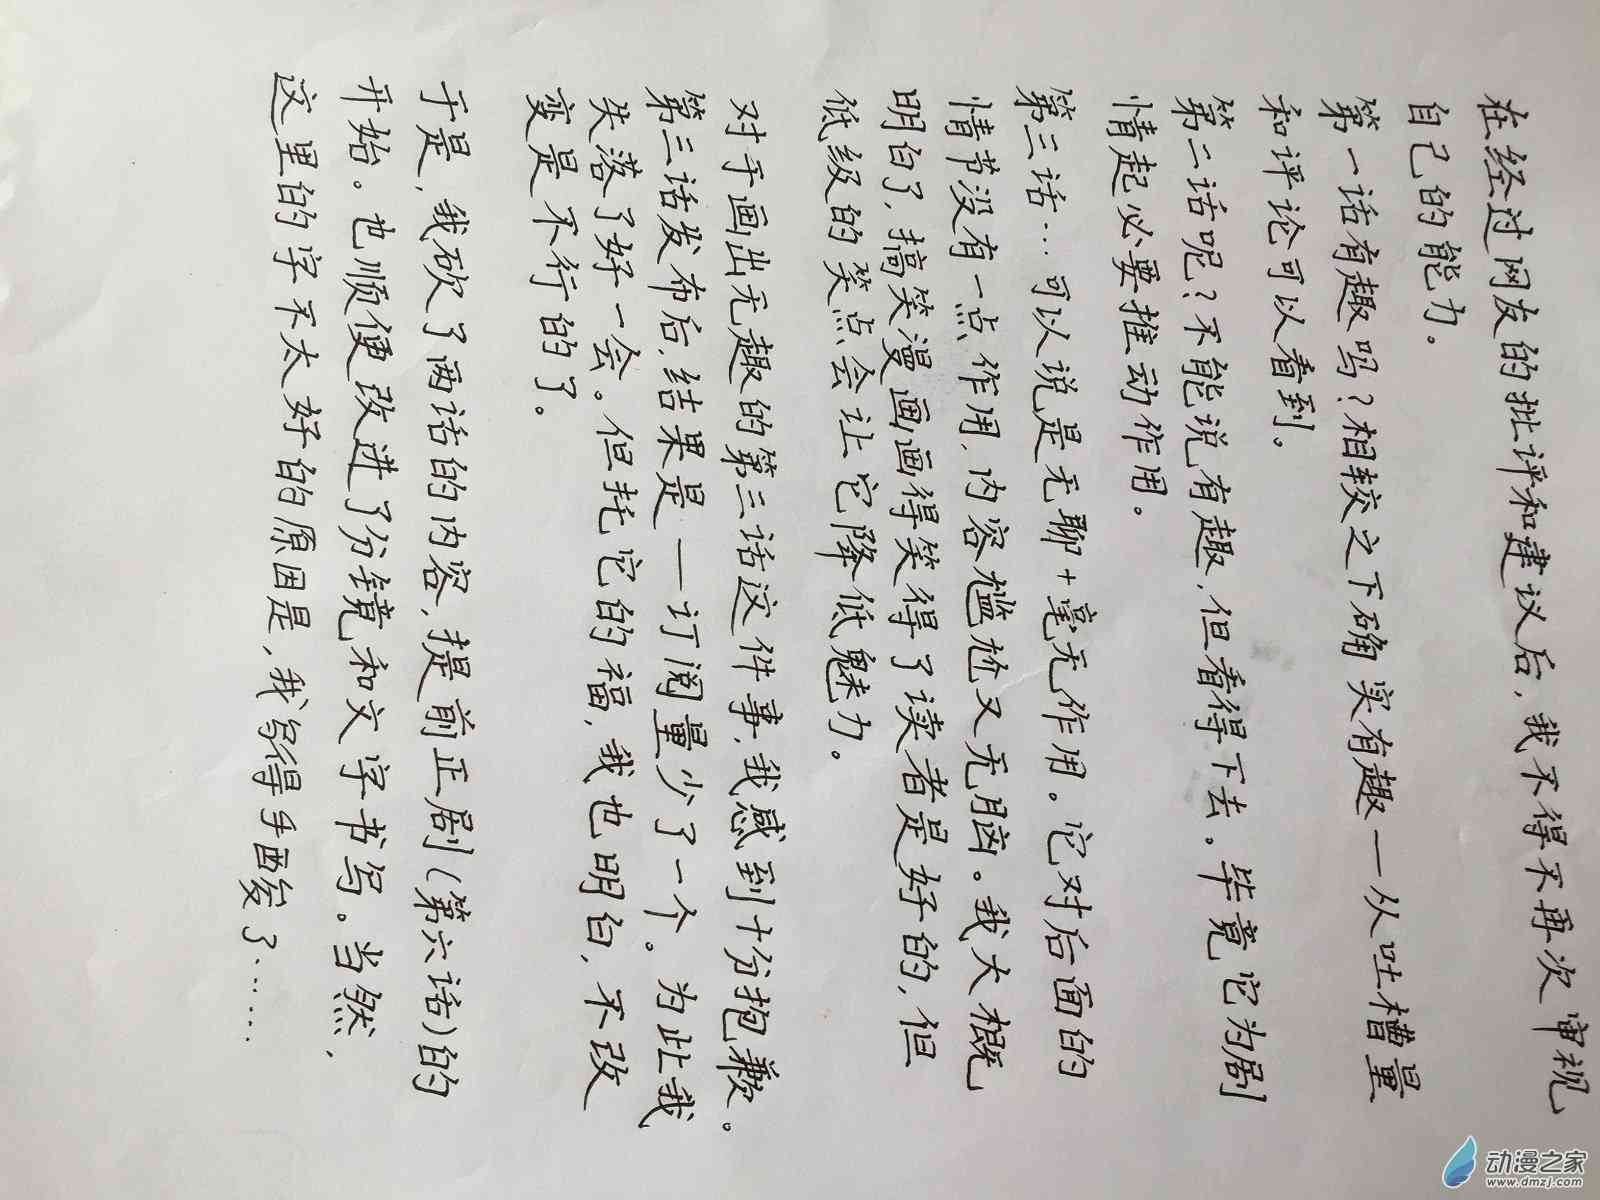 在经过网友的批评和建议后，我不得不再次审视
自己的能力。
第一话有趣吗？相较之下确实有趣—从吐槽量
和评论可以看到。
第二话呢？不能说有趣，但看得下去。毕竟它为剧
情起必要推动作用。
第三话…可以说是无聊+毫无作用。它对后面的
情节没有一点作用，内容尴尬又无脑。我大概
明白了，搞笑漫画画得笑得了读者是好的，但
低级的笑点会让它降低魅力。
对于画出无趣的第三话这件事，我感到十分抱歉。
第三话发布后，结果是—订阅量少了一个。为此我
失落了好一会。但托它的福，我也明白，不改
变是不行的了。
于是，我砍了两话的内容，提前正剧（第六话）的
开始。也顺便改进了分镜和文字书写。当然，
这里的字不太好的原因是，我写得手酸了……
动漫之家
www.dmzj.com